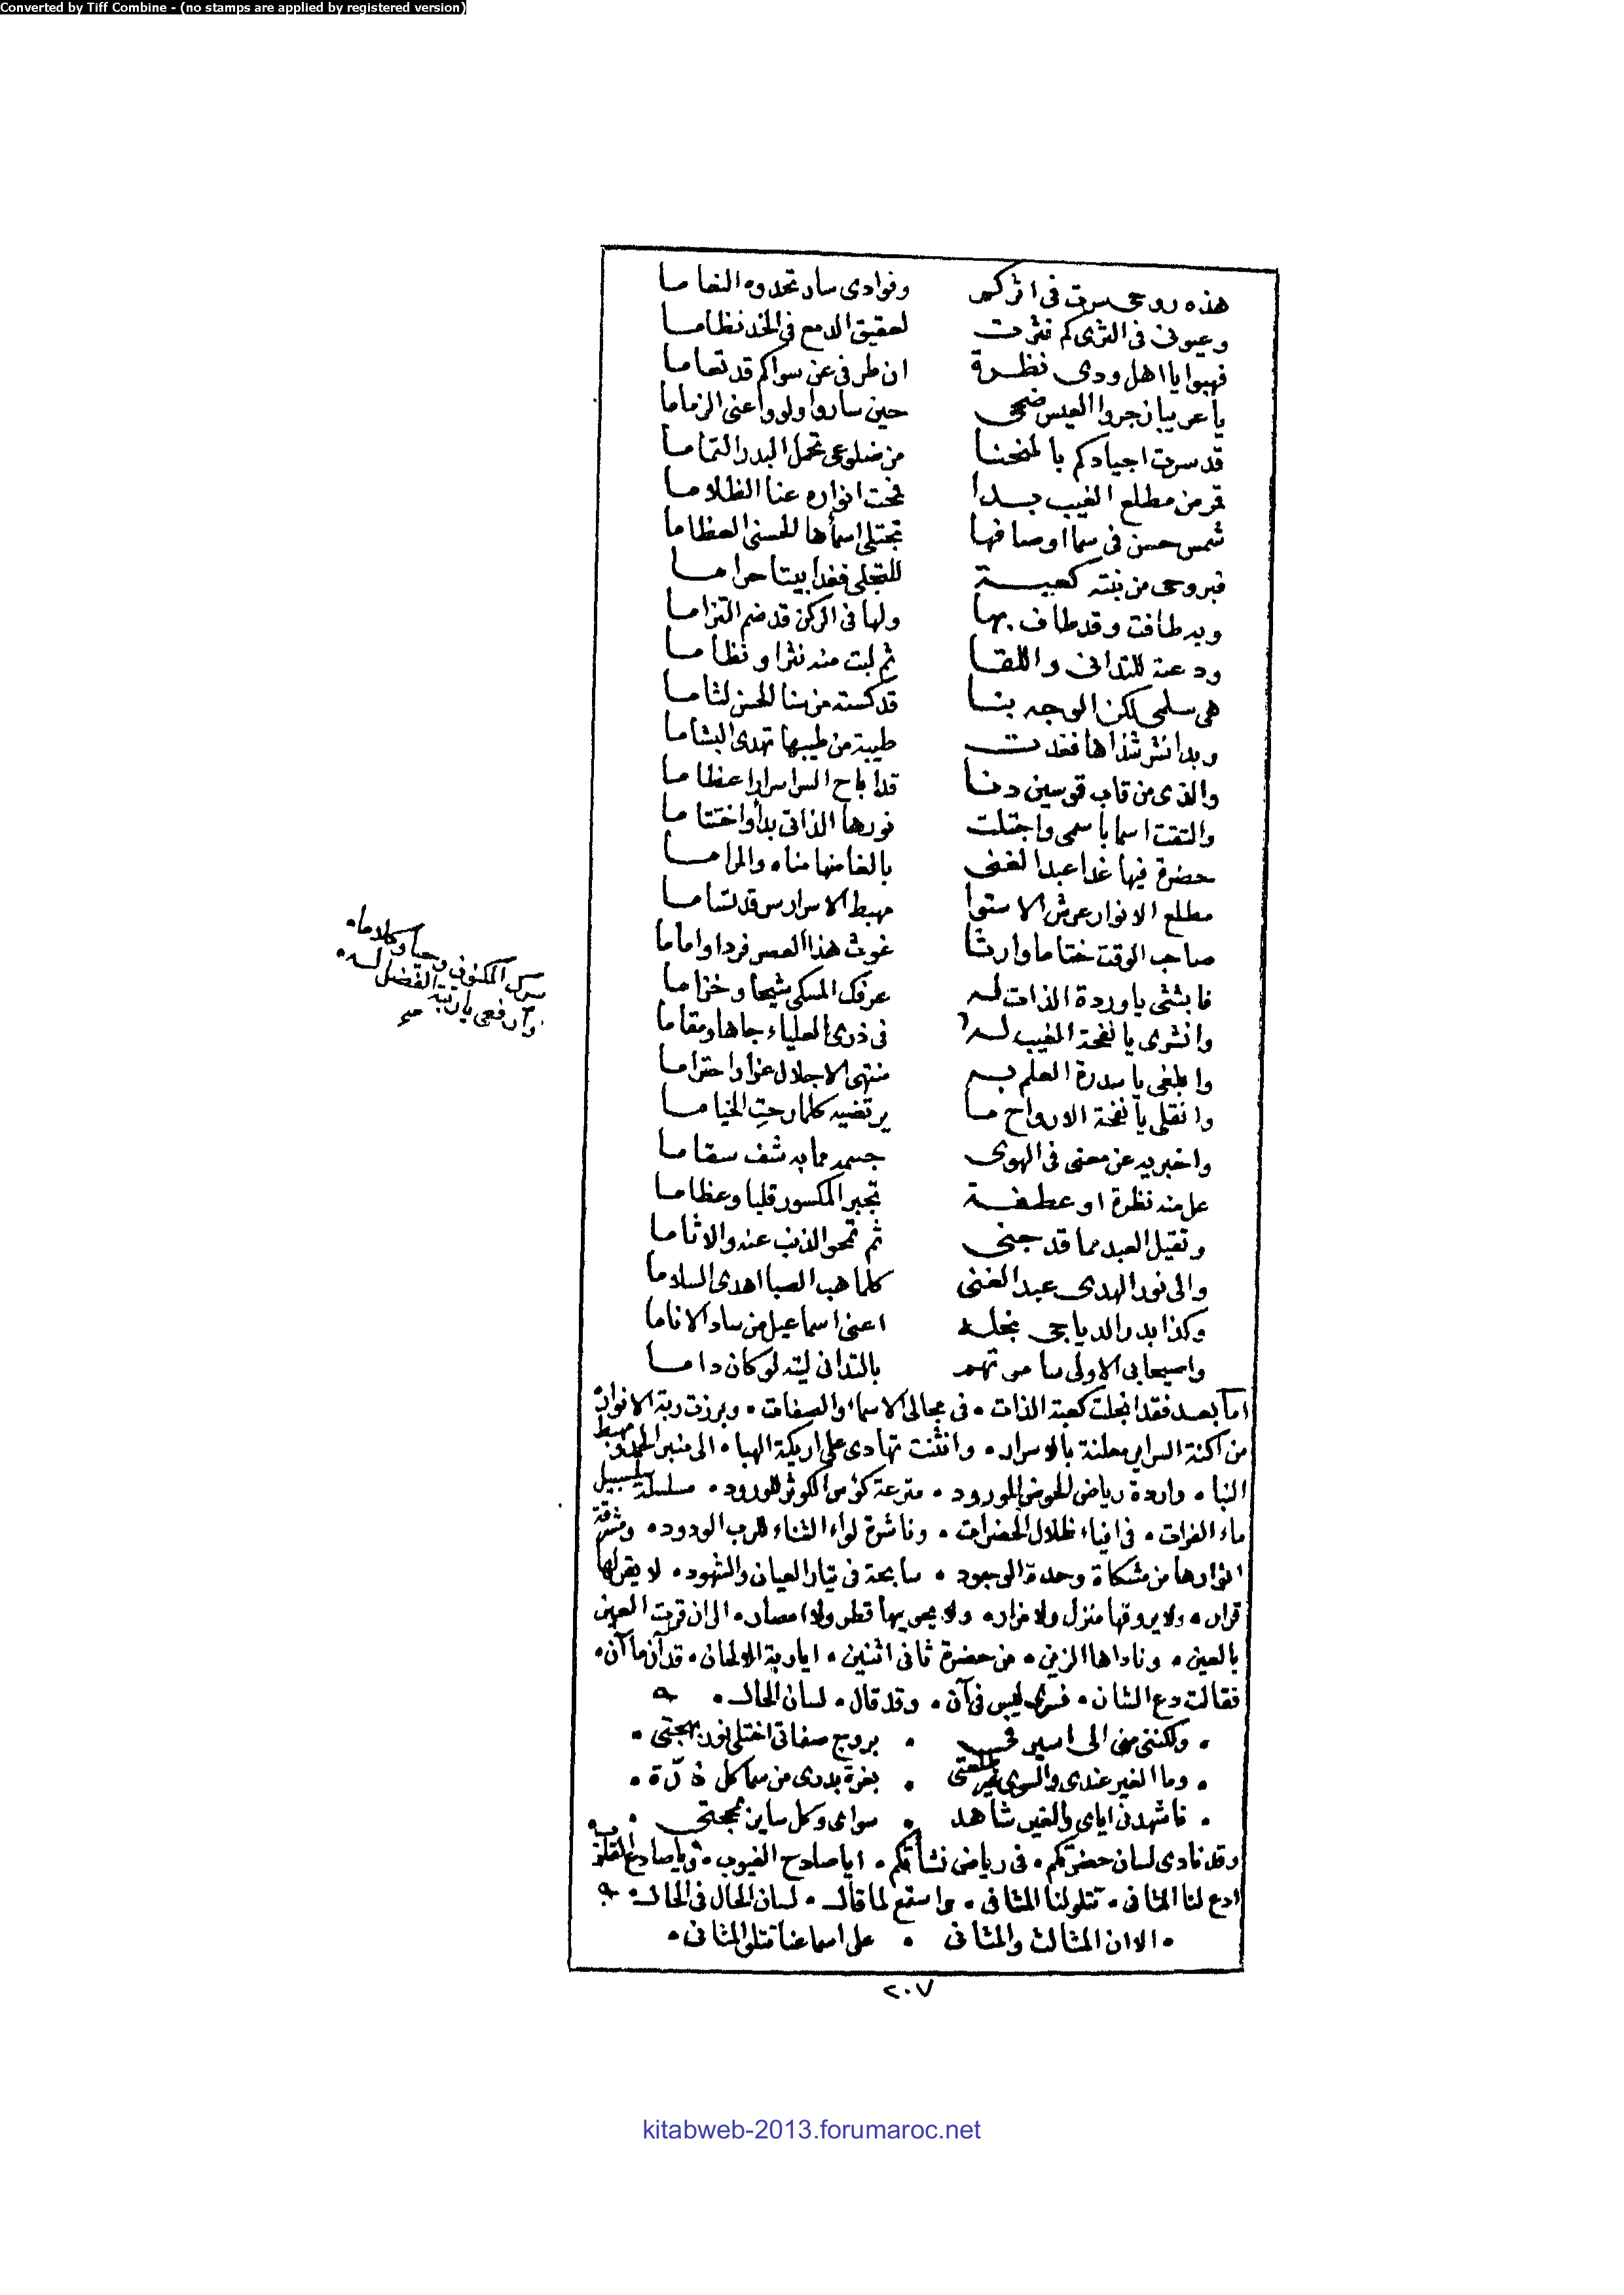 Converted by Tiff Combine - (no stamps are applied by registered version)
هذه روحي سرت في اثركم وفوادى سار تحدوه النعاما
وعيونى فى الثرى كم نثرت لعقيق الدمع فى الخد نظاما
فهبوا يا اهل ودى نظرة ان طرفى عن سواكم قد تعاما
يا عريبا زجروا العيس ضحى حين ساروا ولووا عنى الزماما
قد سرت اجيادكم بالمنحنا من ضلوعى تحمل البدر التماما
قمر من مطلع الغيب بدا فمحت انواره عنا الظلاما
شمس حسن فى سما اوصافها تجتلى اسماها الحسنى العظاما
فبروحى من بنته كعبة للتجلى فغدا بيتا حراما
وبه طافت وقد طاف بها ولها فى الركن قد ضم التزاما
ودعته للتدانى واللقا ثم لبت منه نثرا ونظاما
هى سلمى لكن الوجه بنا قد كسته من سنا الحسن لثاما
وبدا نشر شذاها فغدت طيبة من طيبها تهدى البشاما
والذى من قاب قوسين دنا قد اباح السر اسرارا عظاما
والتقت اسما باسمى واجتلت نورها الذاتى بدأ واختتاما
حضرة فيها غدا عبد الغنى بالغا منها مناه والمراما
مطلع الانوار عرش الاستوا مهبط الاسرار من قد تساما
صاحب الوقت ختاما وارثا غوث هذا العصر فردا واماما
فابثثى يا وردة الذات له عرفك المسكى شيحا وخزاما
وانشرى يا نفحة الغيب له سرك المكنون وحيا وكلاما
وارفعى يا رتبة الفضل له فى ذرى العلياء جاها ومقاما
وابلغى يا سدرة العلم به منتهى الاجلال عزا واحتراما
وانقلى يا نفخة الارواح ما يرتضيه كلما رحت الخياما
واخبريه عن معنى فى الهوى جسمه مما به شف سقاما
عل منه نظرة او عطفة تجبر المكسور قلبا وعظاما
وتقيل العبد مما قد جنى ثم تمحو الذنب عنه والاثاما
والى نور الهدى عبد الغنى كلما هب الصبا اهدى السلاما
وكذا بدر الدياجى نجله اعنى اسماعيل من ساد الاناما
واصيحابى الاولى سامرتهم بالتدانى ليته لو كان داما
اما بعد فقد انجلت كعبة الذات • فى مجالى الاسماء والصفات • وبرزت ربة الانوار
من اكنة السراير معلنة بالاسرار • وانثنت تهادى على اريكة الهبا • الى منبر الحمد ومهبط
النبا • واردة رياض الحوض المورود • مترعة كؤس الكوثر للورود • مسلسلة سلسبيل
ماء الفرات • فى افياء ظلال الحضرات • وناشرة لواء الثناء للرب الودود • ومشرقة
انوارها من مشكاة وحدة الوجود • سابحة فى تيار العيان والشهود • لا يقر لها
قرار • ولا يروقها منزل ولا مزار • ولا يحويها قطر ولا امصار • الى ان قرت العين
بالعين • وناداها الزين • من حضرة ثانى اثنين • ايا ربة الالحان • قد آن ما آن •
فقالت دع الشان • فسرى ليس فى آن • وقد قال • لسان الحال •
• ولكننى منى الى اسير فى • بروج صفاتى اختلى نور بهجتى •
• وما الغير عندى والسوى غير طلعتى • بغرة بدرى من سما كل ذرة •
• فاشهدنى اياى والغير شاهد • سواى وكل ساير بمحجتى •
وقد نادى لسان حضرتكم • فى رياض نشأتكم • ايا صادح الغيوب • ويا صادع القلوب
ادع لنا المثانى • تتلو لنا المثانى • واسمع لما قال • لسان الحال فى الحال •
• الا ان المثالث والمثانى • على اسماعنا تتلو المثانى •
٢٠٧
kitabweb-2013.forumaroc.net